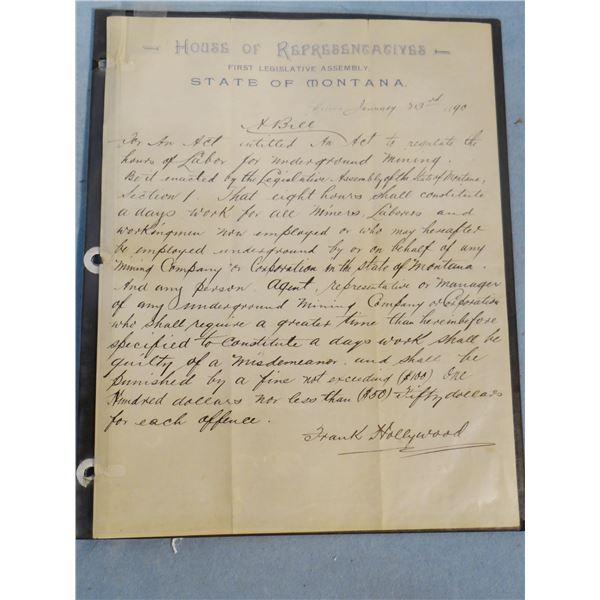 House of Representatives
FIRST LEGISLATIVE ASSEMBLY.
STATE OF MONTANA.
January 23rd 1890
A Bill
For An Act entitled An Act to regulate the
hours of Labor for underground Mining.
Be it enacted by the Legislative Assembly of the State of Montana,
Section 1 That eight hours shall constitute
a days work for all Miners, Laborers and
workingmen now employed or who may hereafter
be employed underground by or on behalf of any
Mining Company or Corporation in the State of Montana.
And any person Agent, representative or Manager
of any underground Mining Company or Corporation
who shall require a greater time than herembefore
specified to constitute a days work shall be
guilty of a Misdemeanor and shall be
punished by a fine not exceeding ($100) One
Hundred dollars nor less than ($50) Fifty dollars
for each offence.
Frank Hollywood